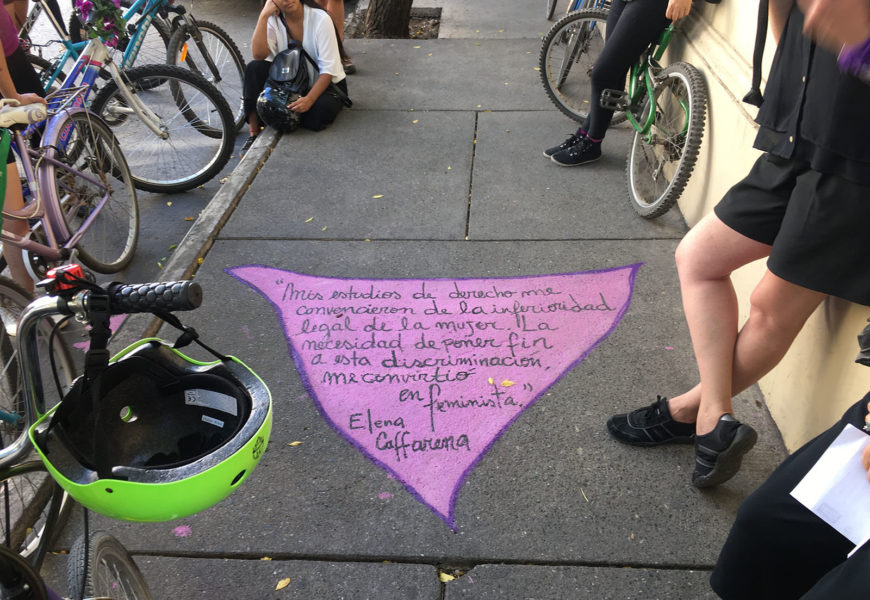 "Mis estudios de derecho me
convencieron de la inferioridad
legal de la mujer. La
necesidad de poner fin
a esta discriminación,
me convirtió
en feminista."
Elena
Caffarena